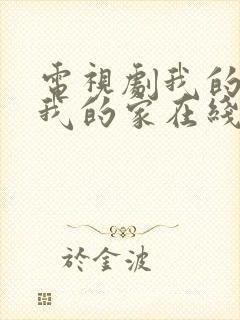 電視劇我的
我的家在綫
於金波